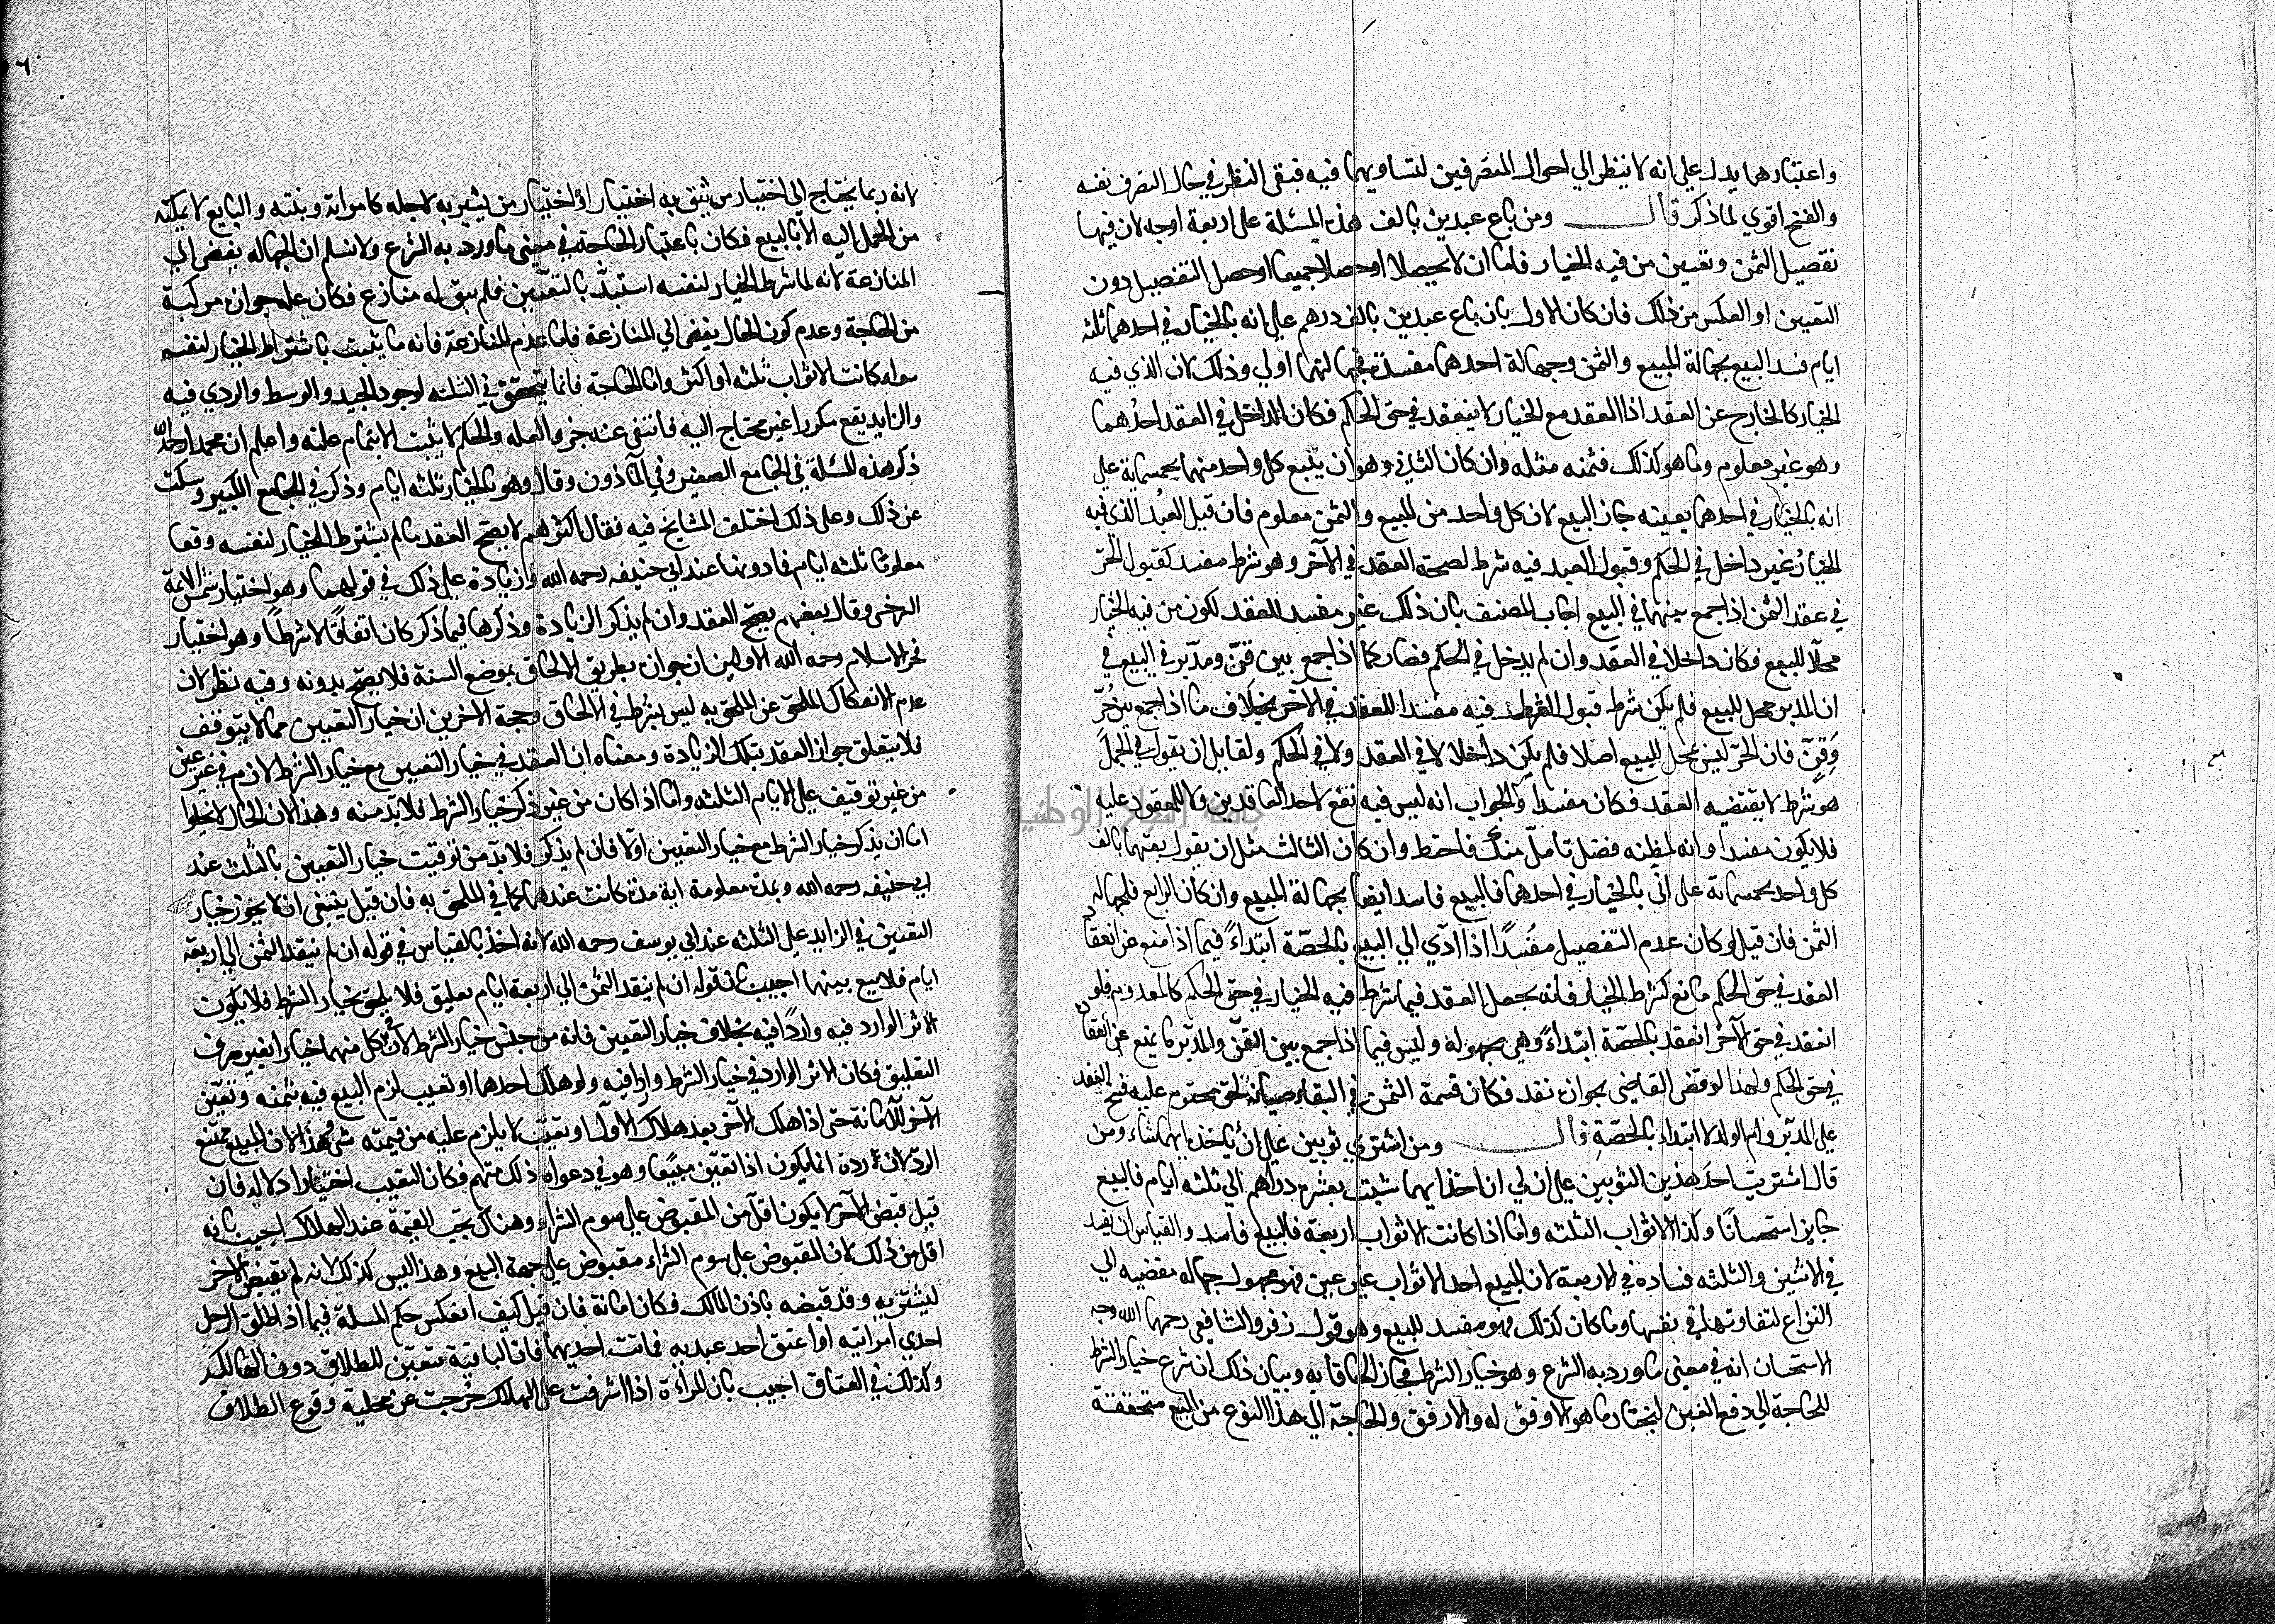 واعتبارهما يدل علي انه لا ينظر الي احوال المتصرفين لتساويهما فيه فبقي النظر في حال التصرف نفسه
والفسخ اقوي لما ذكر قال ومن باع عبدين بالف هذه المسئلة علي اربعة اوجه لان فيها
تفصيل الثمن وتعيين من فيه الخيار فاما ان لا يحصلا او حصلا جميعا او حصل التفصيل دون
التعيين او العكس من ذلك فان كان الاول بان باع عبدين بالف درهم علي انه بالخيار في احدهما ثلثه
ايام فسد البيع لجهالة المبيع والثمن وجهالة احدهما مفسدة فجهالتهما اولي وذلك لان الذي فيه
الخيار كالخارج عن العقد اذ العقد مع الخيار لا ينعقد في حق الحكم فكان الداخل في العقد احدهما
وهو غير معلوم وما هو كذلك فثمنه مثله وان كان الثاني وهو ان يبيع كل واحد منهما بخمسماية علي
انه بالخيار في احدهما بعينه جاز البيع لان كل واحد من المبيع والثمن معلوم فان قيل العبد الذي فيه
الخيار غير داخل في الحكم وقبول العبد فيه شرط لصحة العقد في الآخر وهو شرط مفسد كقبول الحر
في عقد الثمن اذا جمع بينهما في البيع اجاب المصنف بان ذلك غير مفسد للعقد لكون من فيه الخيار
محلا للبيع فكان داخلا في العقد وان لم يدخل في الحكم فصار كما اذا جمع بين قن ومدبر في البيع في
ان المدبر محل للبيع فلم يكن شرط قبول فيه مفسدا للعقد في الآخر بخلاف ما اذا جمع بين حر
وقن فان الحر ليس بمحل للبيع اصلا فلم يكن داخلا لا في العقد ولا في الحكم ولقايل ان يقول في الحمل
هو شرط لا يقتضيه العقد فكان مفسدا والجواب انه ليس فيه نفع لاحد العاقدين ولا للمعقود عليه
فلا يكون مفسدا وانه لمظنه فضل تامل منك فاحتط وان كان الثالث مثل ان يقول بعتهما بالف
كل واحد بخمسمائه علي اني بالخيار في احدهما فالبيع فاسد ايضا لجهالة المبيع وان كان الرابع فلجهاله
الثمن فان قيل لو كان عدم التفصيل مفسدا اذا ادي الي البيع بالحصة ابتداء فيما اذا منع عن انعقاد
العقد في حق الحكم مانع كشرط الخيار فانه يجعل العقد فيما شرط فيه الخيار في حق الحكم كالمعدوم فلو
انعقد في حق الآخر انعقد بالحصة ابتداء وهي مجهولة وليس فيما اذا جمع بين القن والمدبر ما يمنع عن انعقاد
في حق الحكم ولهذا لو قضي القاضي بجوازه نفذ فكان قسمة الثمن في البقاء صيانه لحق محترم عليه فسخ العقد
علي المدبر وام الولد لا ابتداء بالحصة قال ومن اشتري ثوبين علي ان ياخذ ايهما شاء ومن
قال اشتريت احد هذين الثوبين علي ان لي ان اخذ ايهما شيت بعشرة دراهم الي ثلثه ايام فالبيع
جايز استحسانا وكذا الاثواب الثلثه واما اذا كانت الاثواب اربعة فالبيع فاسد والقياس ان يفسد
في الاثنين والثلثه فساده في الاربعة لان المبيع احد الاثواب غير عين فهو مجهول جهاله مفضيه الي
النزاع لتفاوتها في نفسها وما كان كذلك فهو مفسد للبيع وهو قول زفر والشافعي رحمهما الله وجه
الاستحسان انه في معني ما ورد به الشرع وهو خيار الشرط فجاز الحاقا به وبيان ذلك ان شرع خيار الشرط
للحاجة الي دفع الغبن ليختار ما هو الاوفق له والارفق والحاجة الي هذا النوع من البيع متحققة
لانه ربما يحتاج الي اختيار من يثق به اختيار او اختيار من يشتريه لاجله كامراته وبنته والبايع لا يمكنه
من الحمل اليه الا بالبيع فكان باعتبار الحاجة في معني ما ورد به الشرع ولا نسلم ان الجهاله يفضي الي
المنازعة لانه لما شرط الخيار لنفسه استبد بالتعيين فلم يبق له منازع فكان علة جوازه مركبة
من الحاجة وعدم كون الحال يفضي الي المنازعة فاما عدم المنازعة فانه ما يثبت باشتراط الخيار لنفسه
سواء كانت الاثواب ثلثه او اكثر واما الحاجة فانما يتحقق في الثلثه لوجود الجيد والوسط والردي فيه
والزايد يقع مكررا غير محتاج اليه فانتفي عنه جزو العله والحكم لا يثبت الا بتمام علته واعلم ان محمدا رحمه الله
ذكر هذه المسئلة في الجامع الصغير وفي الماذون وقال وهو بالخيار ثلثه ايام وذكر في الجامع الكبير وسكت
عن ذلك وعلي ذلك اختلف المشايخ فيه فقال اكثرهم لا يصح العقد ما لم يشترط الخيار لنفسه وقتا
معلوما ثلثه ايام فما دونها عند ابي حنيفه رحمه الله وزيادة علي ذلك في قولهما وهو اختيار شمس الائمة
السرخسي وقال بعضهم يصح العقد وان لم يذكر الزيادة وذكرها فيما ذكر كان اتفاقا لا شرطا وهو اختيار
فخر الاسلام رحمه الله الاولين ان جوازه بطريق الالحاق بموضع السنة فلا يصح بدونه وفيه نظر لان
عدم الانفكاك الملحق عن الملحق به ليس بشرط في الالحاق وحجة الاخرين ان خيار التعيين مما لا يتوقف
فلا يتعلق جواز العقد بتلك الزيادة ومعناه ان العقد في خيار التعيين مع خيار الشرط لازم في غير عين
من غير توقيف علي الايام الثلثه واما اذا كان من غير ذكر خيار الشرط فلا بد منه وهذا لان الحال لا يخلوا
اما ان يذكر خيار الشرط مع خيار التعيين او لا فان لم يذكر فلا بد من توقيت خيار التعيين بالثلث عند
ابي حنيفه رحمه الله وبمدة معلومة اية مدة كانت عندهما كما في الملحق به فان قيل ينبغي ان لا يجوز خيار
التعيين في الزايد علي الثلثه عند ابي يوسف رحمه الله لانه اخذ بالقياس في قوله ان لم ينقد الثمن الي اربعة
ايام فلا بيع بينهما اجيب بان قوله ان لم ينقد الثمن الي اربعة ايام تعليق فلا يلحق بخيار الشرط فلا يكون
الاثر الوارد فيه واردا فيه بخلاف خيار التعيين فانه من جنس خيار الشرط لان كل منهما خيار بغير حرف
التعليق فكان الاثر الوارد في خيار الشرط واردا فيه ولو هلك احدهما او تعيب لزم البيع فيه بثمنه وتعين
الآخر للامانه حتي اذا هلك الآخر بعد هلاك الاول او تعيب لا يلزم عليه من قيمته شي وهذا لان المبيع ممتنع
الرد لان رده انما يكون اذا تعين مبيعا وهو في دعواه ذلك متهم فكان التعيب اختيارا دلالة فان
قيل قبض الآخر لا يكون اقل من المقبوض علي سوم الشراء وهناك تجب القيمة عند الهلاك اجيب بانه
اقل من ذلك لان المقبوض علي سوم الشراء مقبوض علي جهة البيع وهذا ليس كذلك لانه لم يقبض الاخر
ليشتريه وقد قبضه باذن المالك فكان امانة فان قيل كيف انعكس حكم المسئلة فيما اذا طلق الرجل
احدي امراتيه او اعتق احد عبديه فماتت احديهما فان الباقية تتعين للطلاق دون الهالكة
وكذلك في العتاق اجيب بان المراءة اذا اشرفت علي الهلاك خرجت عن محلية وقوع الطلاق
جامعة النجاح الوطنية